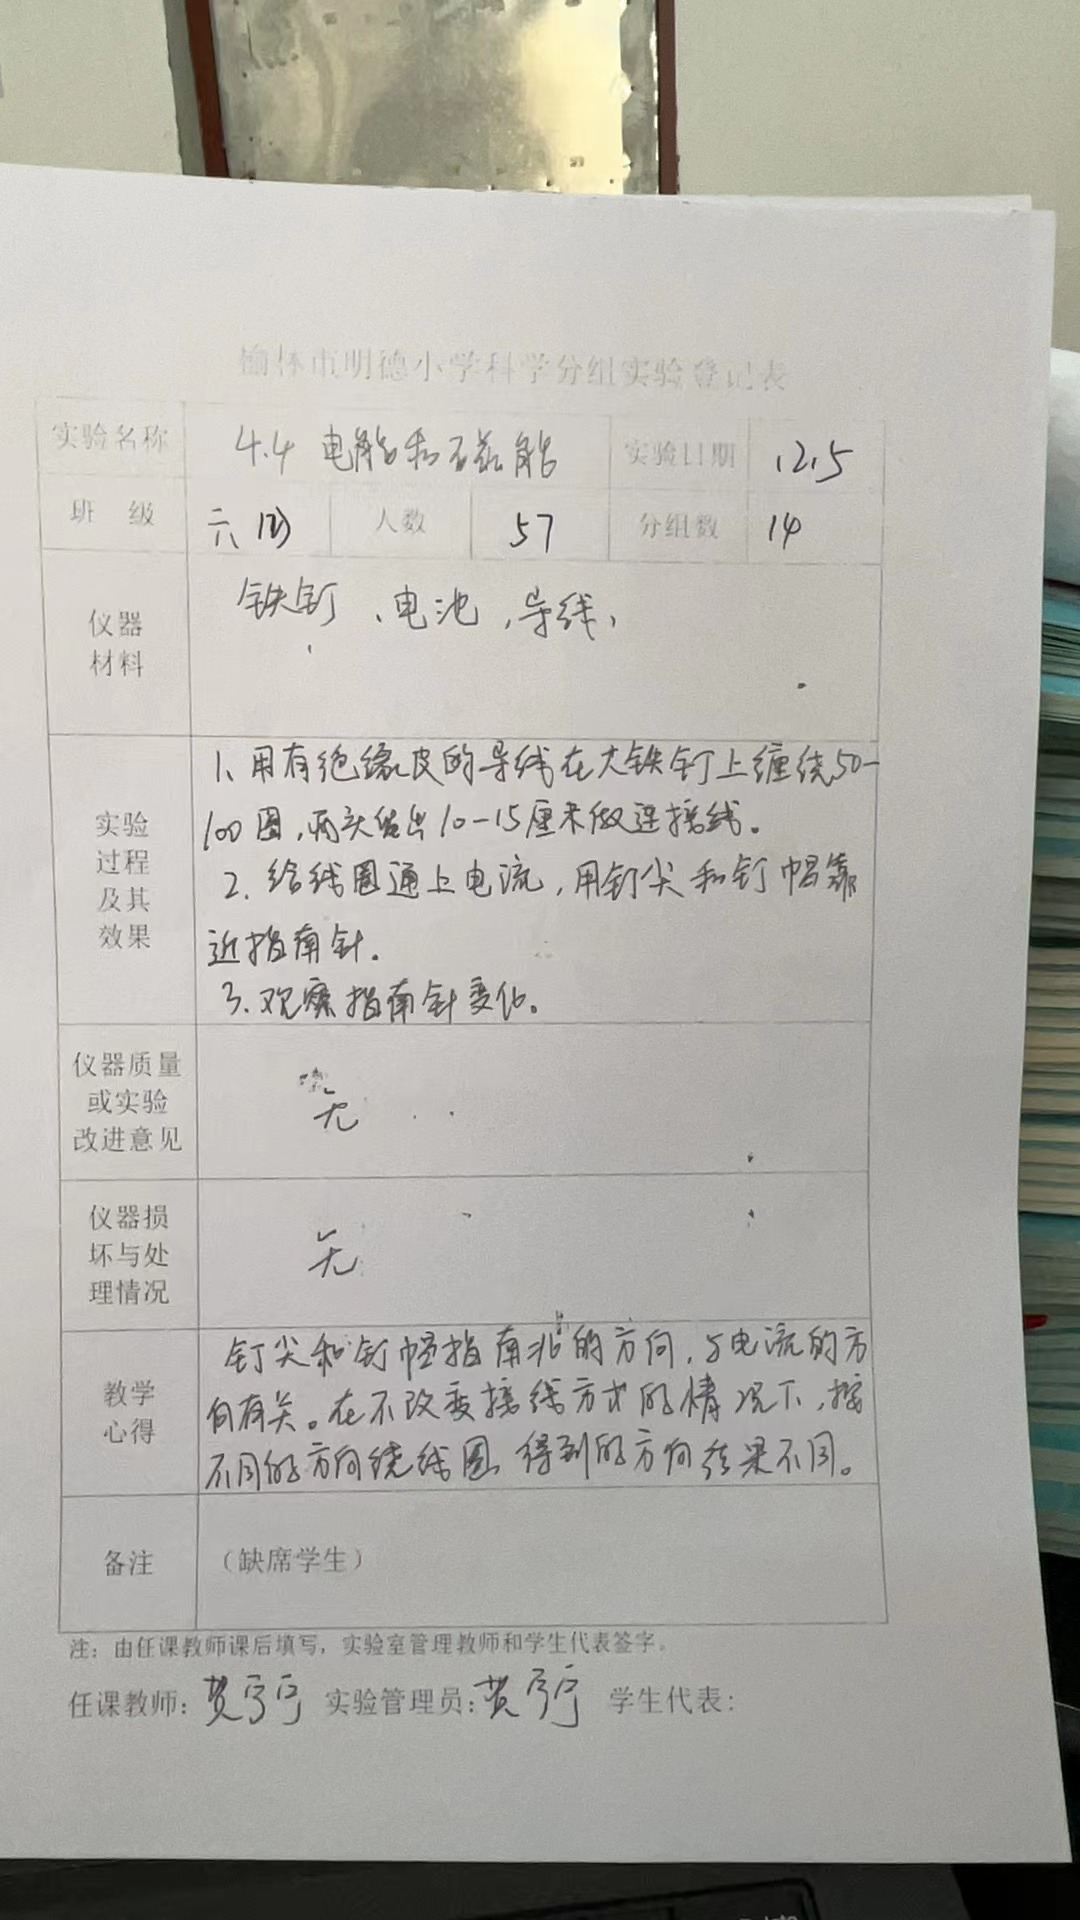 榆林市明德小学科学分组实验登记表
实验名称 4.4 电能和磁能 实验日期 12.5
班 级 六 人数 57 分组数 14
仪器材料 铁钉、电池,导线,
实验过程及其效果
1、用有绝缘皮的导线在大铁钉上缠绕50-
100圈,两头留出10-15厘米做连接线。
2、给线圈通上电流,用钉尖和钉帽靠
近指南针。
3、观察指南针变化。
仪器质量或实验改进意见 无
仪器损坏与处理情况 无
教学心得
钉尖和钉帽指南北的方向,与电流的方
向有关。在不改变接线方式的情况下,按
不同的方向绕线圈,得到的方向结果不同。
备注 (缺席学生)
注:由任课教师课后填写,实验室管理教师和学生代表签字。
任课教师: 实验管理员: 学生代表: